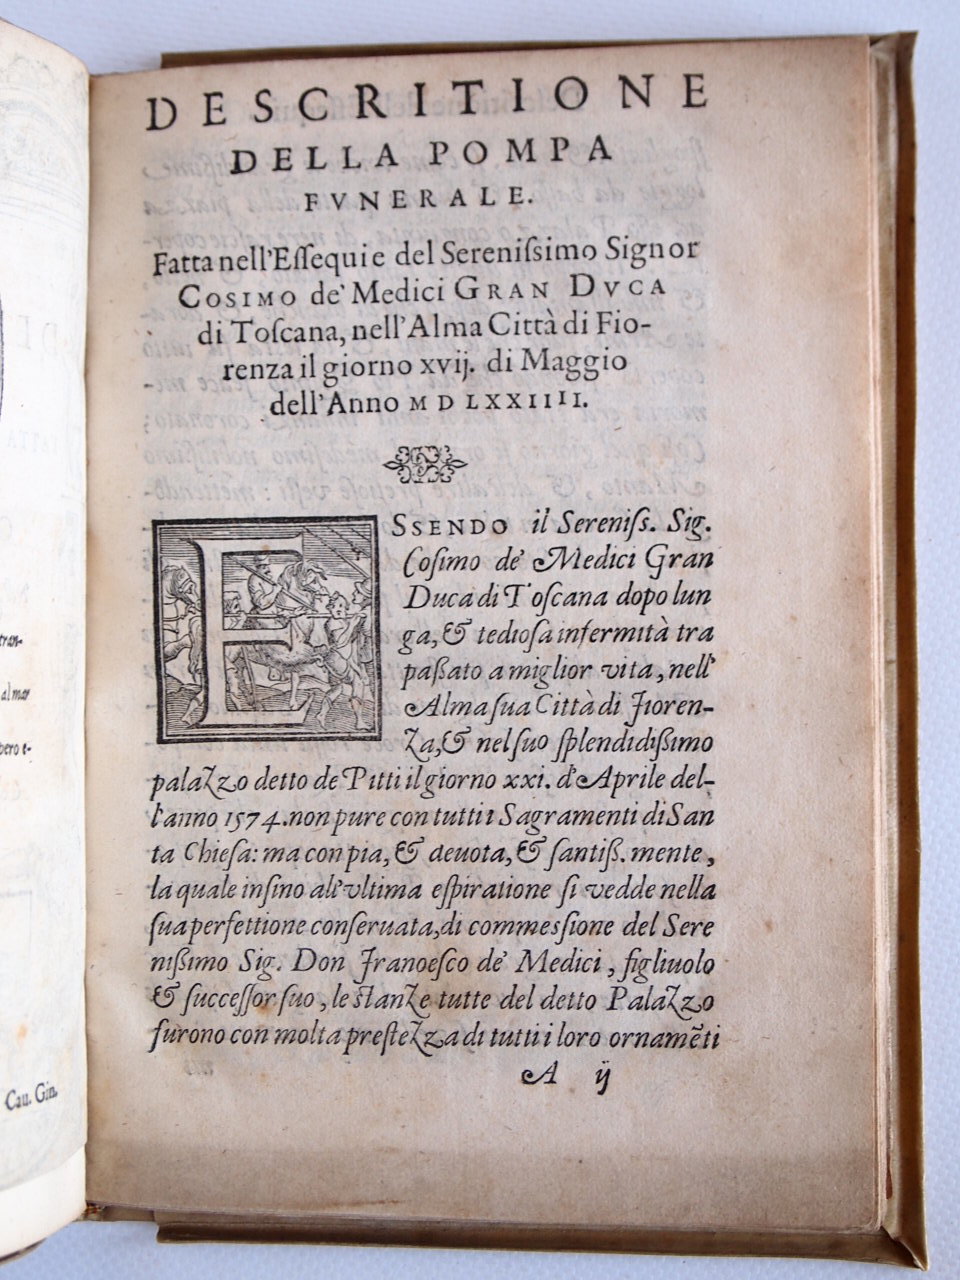 DESCRITIONE
DELLA POMPA
FVNERALE.
Fatta nell'Eſſequie del Sereniſsimo Signor
COSIMO de' Medici GRAN DVCA
di Toſcana, nell'Alma Città di Fio-
renza il giorno xvij. di Maggio
dell'Anno MDLXXIIII.
ESSENDO il Sereniſs. Sig.
Coſimo de' Medici Gran
Duca di Toſcana dopo lun
ga, & tedioſa infermità tra
paſſato a miglior vita, nell'
Alma ſua Città di Fioren-
za, & nel ſuo ſplendidiſsimo
palazzo detto de Pitti il giorno xxi. d'Aprile del-
l'anno 1574. non pure con tutti i Sagramenti di San
ta Chieſa: ma con pia, & deuota, & ſantiſs. mente,
la quale inſino all'vltima eſpiratione ſi vedde nella
ſua perfettione conſeruata, di commeſſione del Sere
niſsimo Sig. Don Franceſco de' Medici, figliuolo
& ſucceſſor ſuo, le ſtanze tutte del detto Palazzo
furono con molta preſtezza di tutti i loro ornamēti
A ij
tran-
al mar
pero e-
Cau. Gin.